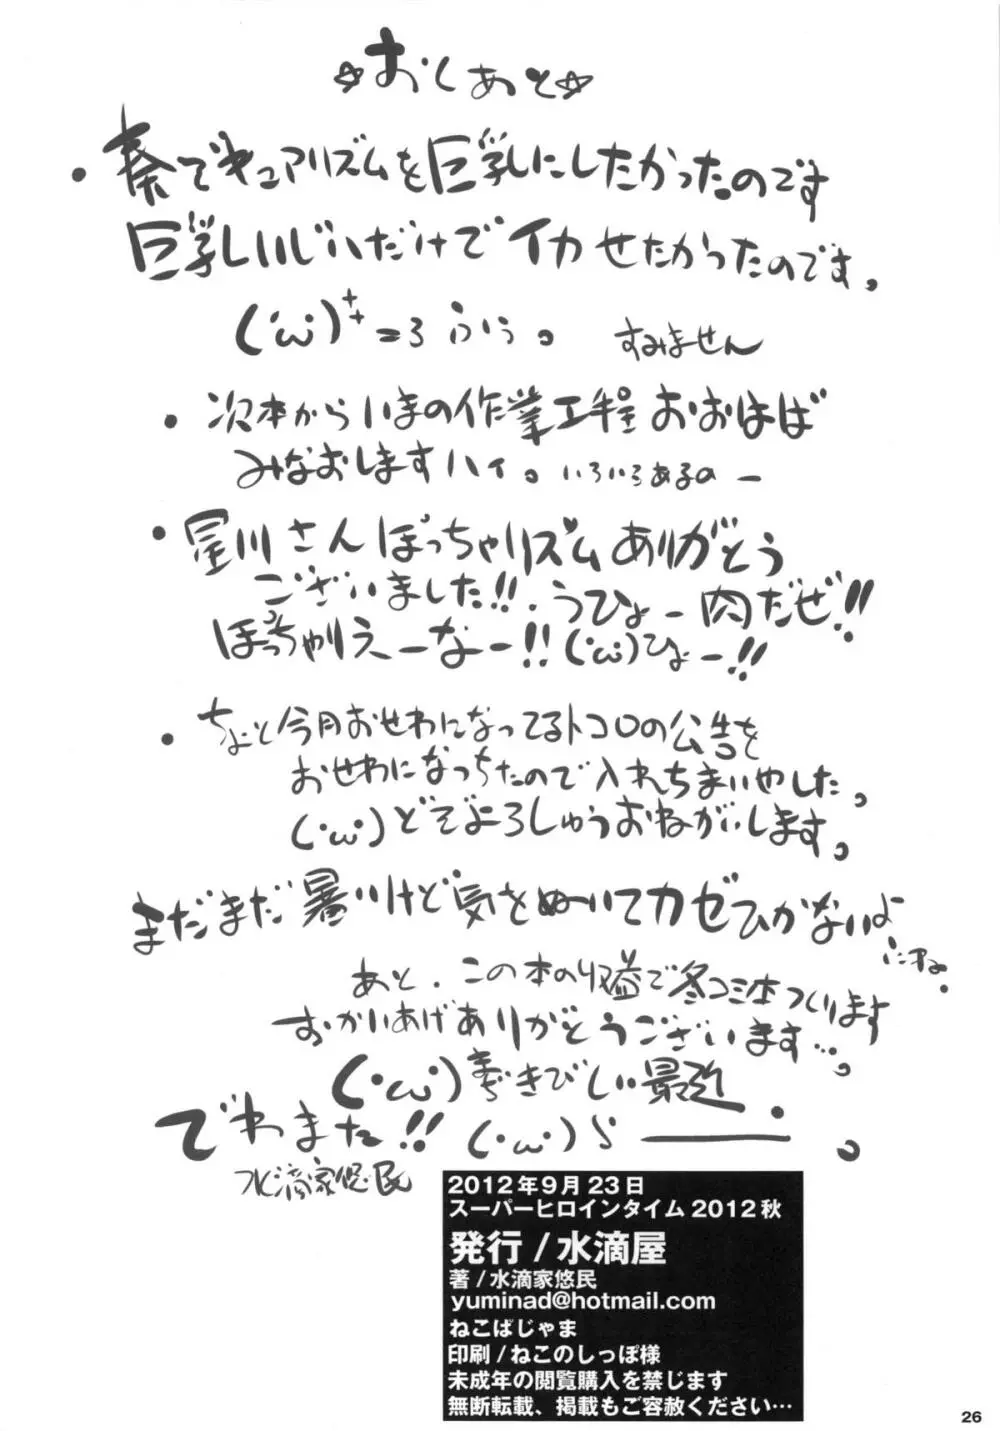 ☆おしあと☆
・奏でキュアリズムを巨乳にしたかったのです
巨乳しいじいだけでイカせたかったのです。
(´ω`)++=3 ふぅぅ。 すみません
・次本からいまの作業工程おおはば
みなおしますハイ。いろいろあるのー
・星川さんぽっちゃりズムありがとう
ございました!!. うひょー肉だぜ!!
ぽっちゃりえーなー!! (・ω・)ひょー!!
・ちょと今月おせわになってるトコロの公告を
おせわになっちたので入れちまいやした。
(・ω・)どぞよろしゅうおねがいします。
まだまだ暑いけど気をぬいてカゼひかないよ
にね。
あと、この本の収益で冬コミ本つくります
おかいあげありがとうございます…。
(・ω・)きびしい最近
でわまた!! (・ω・)ノシ
水滴家悠民
2012年9月23日
スーパーヒロインタイム2012秋
発行/水滴屋
著/水滴家悠民
yuminad@hotmail.com
ねこばじゃま
印刷/ねこのしっぽ様
未成年の閲覧購入を禁じます
無断転載、掲載もご容赦ください…
26